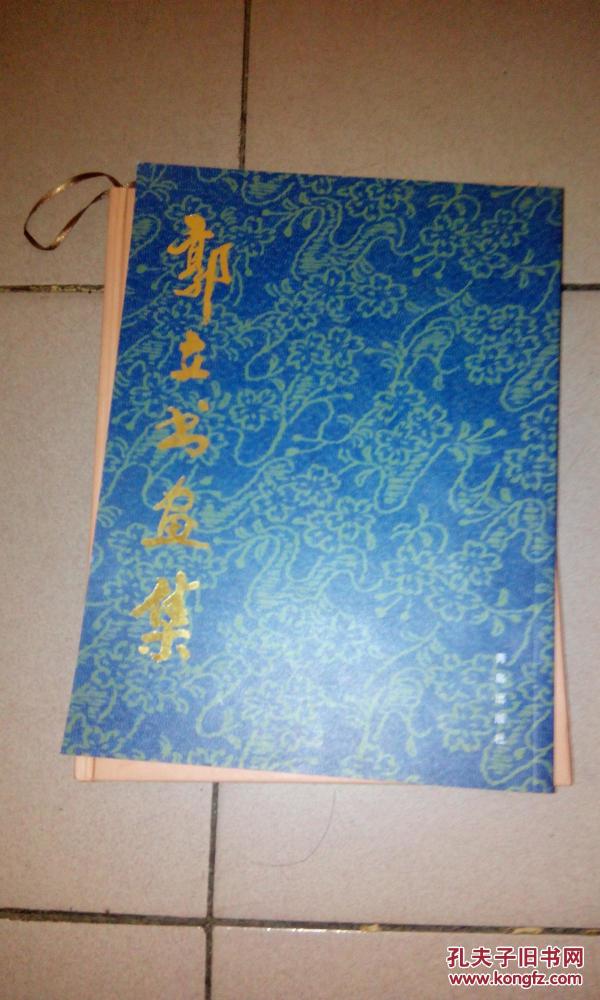 郭立书画集
青岛出版社
孔夫子旧书网
www.kongfz.com